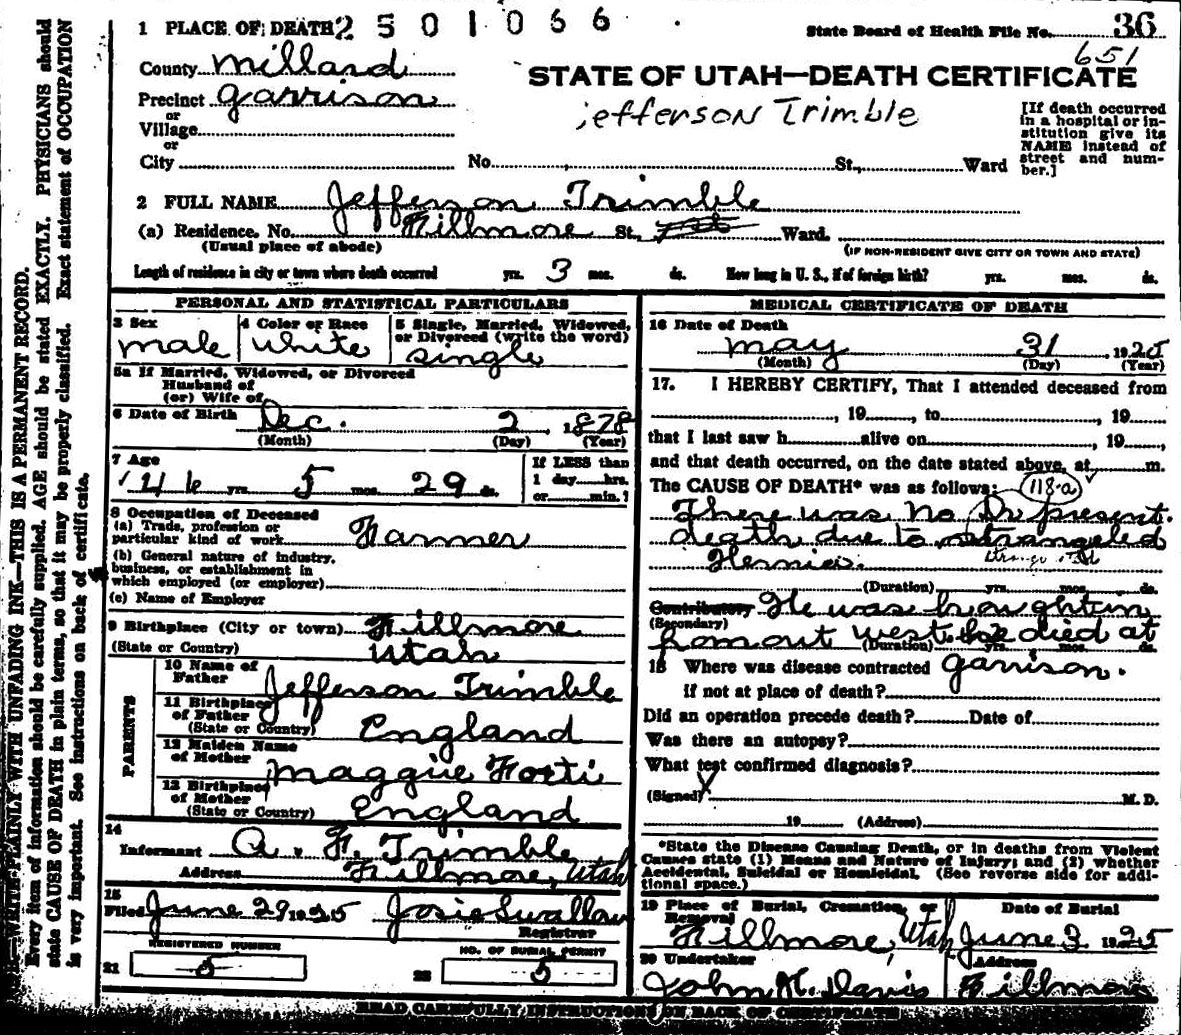 1 PLACE OF DEATH 2 5 0 1 0 6 6
State Board of Health File No. 36
651
County Millard
STATE OF UTAH—DEATH CERTIFICATE
Precinct Garrison
Jefferson Trimble
or
Village
or
City No. St., Ward
[If death occurred
in a hospital or in-
stitution give its
NAME instead of
street and num-
ber.]
2 FULL NAME Jefferson Trimble
(a) Residence, No. Fillmore St., Ward.
(Usual place of abode)
(IF NON-RESIDENT GIVE CITY OR TOWN AND STATE)
Length of residence in city or town where death occurred yrs. 3 mos. ds. How long in U. S., if of foreign birth? yrs. mos. ds.
PERSONAL AND STATISTICAL PARTICULARS
3 Sex
male
4 Color or Race
White
5 Single, Married, Widowed,
or Divorced (write the word)
single
5a If Married, Widowed, or Divorced
Husband of
(or) Wife of
6 Date of Birth Dec. 2, 1878
(Month) (Day) (Year)
7 Age
46 yrs. 5 mos. 29 ds.
If LESS than
1 day hrs.
or min.?
8 Occupation of Deceased
(a) Trade, profession or
particular kind of work Farmer
(b) General nature of industry,
business, or establishment in
which employed (or employer)
(c) Name of Employer
9 Birthplace (City or town) Fillmore
(State or Country) Utah
PARENTS
10 Name of
Father Jefferson Trimble
11 Birthplace
of Father
(State or Country) England
12 Maiden Name
of Mother Maggie Forti
13 Birthplace
of Mother
(State or Country) England
14
Informant A. F. Trimble
Address Fillmore, Utah
15
Filed June 29 1925 Josie Swallow
Registrar
REGISTERED NUMBER
21 5
NO. OF BURIAL PERMIT
22 5
MEDICAL CERTIFICATE OF DEATH
16 Date of Death
May 31, 1925
(Month) (Day) (Year)
17. I HEREBY CERTIFY, That I attended deceased from
, 19 , to , 19
that I last saw h alive on , 19 ,
and that death occurred, on the date stated above, at m.
The CAUSE OF DEATH* was as follows: 118-a
There was no Dr present.
death due to strangeled
Hernia.
(Duration) yrs. mos. ds.
Contributory He was brought in
(Secondary)
from out west. he died at
(Duration) yrs. mos. ds.
18 Where was disease contracted Garrison.
if not at place of death?
Did an operation precede death? Date of
Was there an autopsy?
What test confirmed diagnosis?
(Signed) X M. D.
, 19 (Address)
*State the Disease Causing Death, or in deaths from Violent
Causes state (1) Means and Nature of Injury; and (2) whether
Accidental, Suicidal or Homicidal. (See reverse side for addi-
tional space.)
19 Place of Burial, Cremation, or
Removal
Fillmore, Utah
Date of Burial
June 3 1925
20 Undertaker
John H. Davis
Address
Fillmore
READ CAREFULLY INSTRUCTIONS ON BACK OF CERTIFICATE
WRITE PLAINLY WITH UNFADING INK—THIS IS A PERMANENT RECORD.
Every item of information should be carefully supplied. AGE should be stated EXACTLY. PHYSICIANS should
state CAUSE OF DEATH in plain terms, so that it may be properly classified. Exact statement of OCCUPATION
is very important. See instructions on back of certificate.